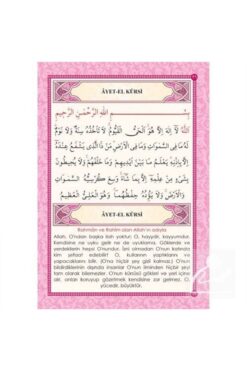 ÂYET-EL KÜRSİ
بِسْمِ اللّٰهِ الرَّحْمٰنِ الرَّحِيمِ
اَللّٰهُ لَٓا اِلٰهَ اِلَّا هُوَ اَلْحَيُّ الْقَيُّومُ لَا تَأْخُذُهُ سِنَةٌ وَلَا نَوْمٌ
لَهُ مَا فِي السَّمٰوَاتِ وَمَا فِي الْاَرْضِ مَنْ ذَا الَّذِي يَشْفَعُ عِنْدَهُ
اِلَّا بِاِذْنِهِ يَعْلَمُ مَا بَيْنَ اَيْدِيهِمْ وَمَا خَلْفَهُمْ وَلَا يُحِيطُونَ
بِشَيْءٍ مِنْ عِلْمِهِ اِلَّا بِمَا شَٓاءَ وَسِعَ كُرْسِيُّهُ السَّمٰوَاتِ
وَالْاَرْضَ وَلَا يَؤُ۫دُهُ حِفْظُهُمَا وَهُوَ الْعَلِيُّ الْعَظِيمُ
ÂYET-EL KÜRSİ
Rahmân ve Rahîm olan Allah'ın adıyla
Allah, O'ndan başka ilah yoktur; O, hayydır, kayyumdur.
Kendisine ne uyku gelir ne de uyuklama. Göklerde ve
yerdekilerin hepsi O'nundur. İzni olmadan O'nun katında
kim şefaat edebilir? O, kullarının yaptıklarını ve
yapacaklarını bilir. (O'na hiçbir şey gizli kalmaz.) O'nun
bildirdiklerinin dışında insanlar O'nun ilminden hiçbir şeyi
tam olarak bilemezler. O'nun kürsüsü gökleri ve yeri içine
alır, onları koruyup gözetmek kendisine zor gelmez. O,
yücedir, büyüktür.